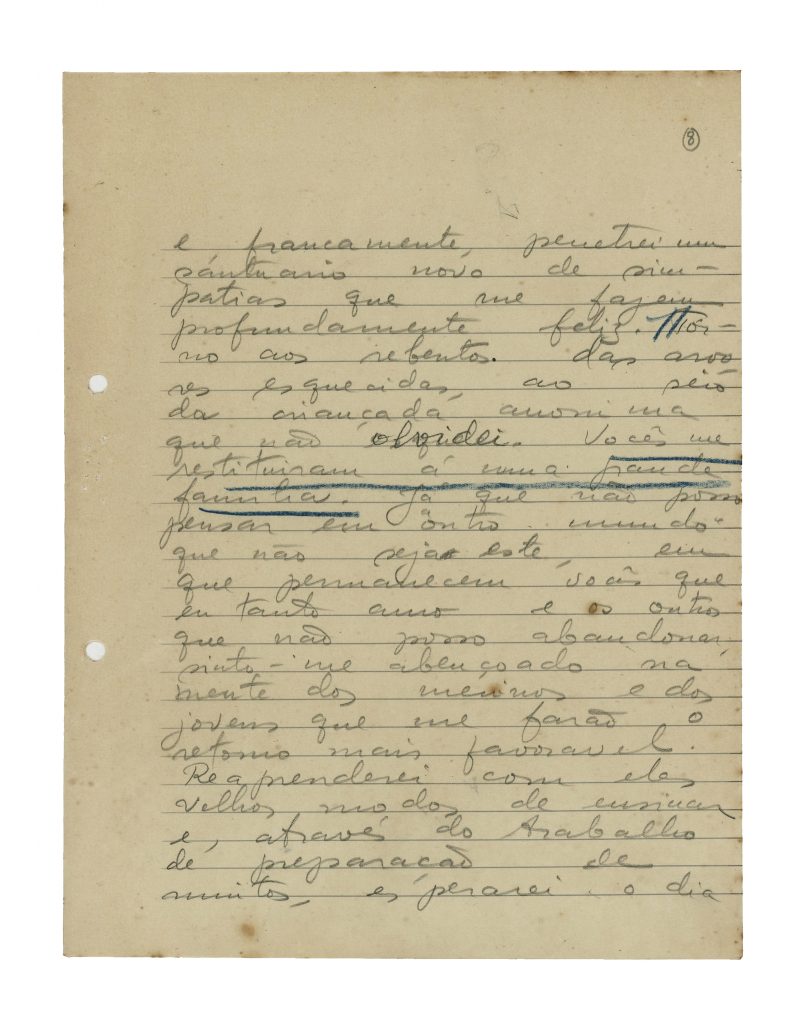 8
e francamente, penetrei um
santuario novo de sim-
patias que me fazem
profundamente feliz. Tor-
no aos rebentos. das arvo
res esquecidas, ao seio
da criançada anonima
que não olvidei. Vocês me
restituiram á uma grande
familia. Já que não posso
pensar em outro mundo
que não seja este, em
que permanecem vocês que
eu tanto amo e os outros
que não posso abandonar,
sinto-me abençoado na
mente dos meninos e dos
jovens que me farão o
retorno mais favoravel.
Reaprenderei com eles
velhos modos de ensinar
e, através do trabalho
de preparação de
muitos, esperarei o dia